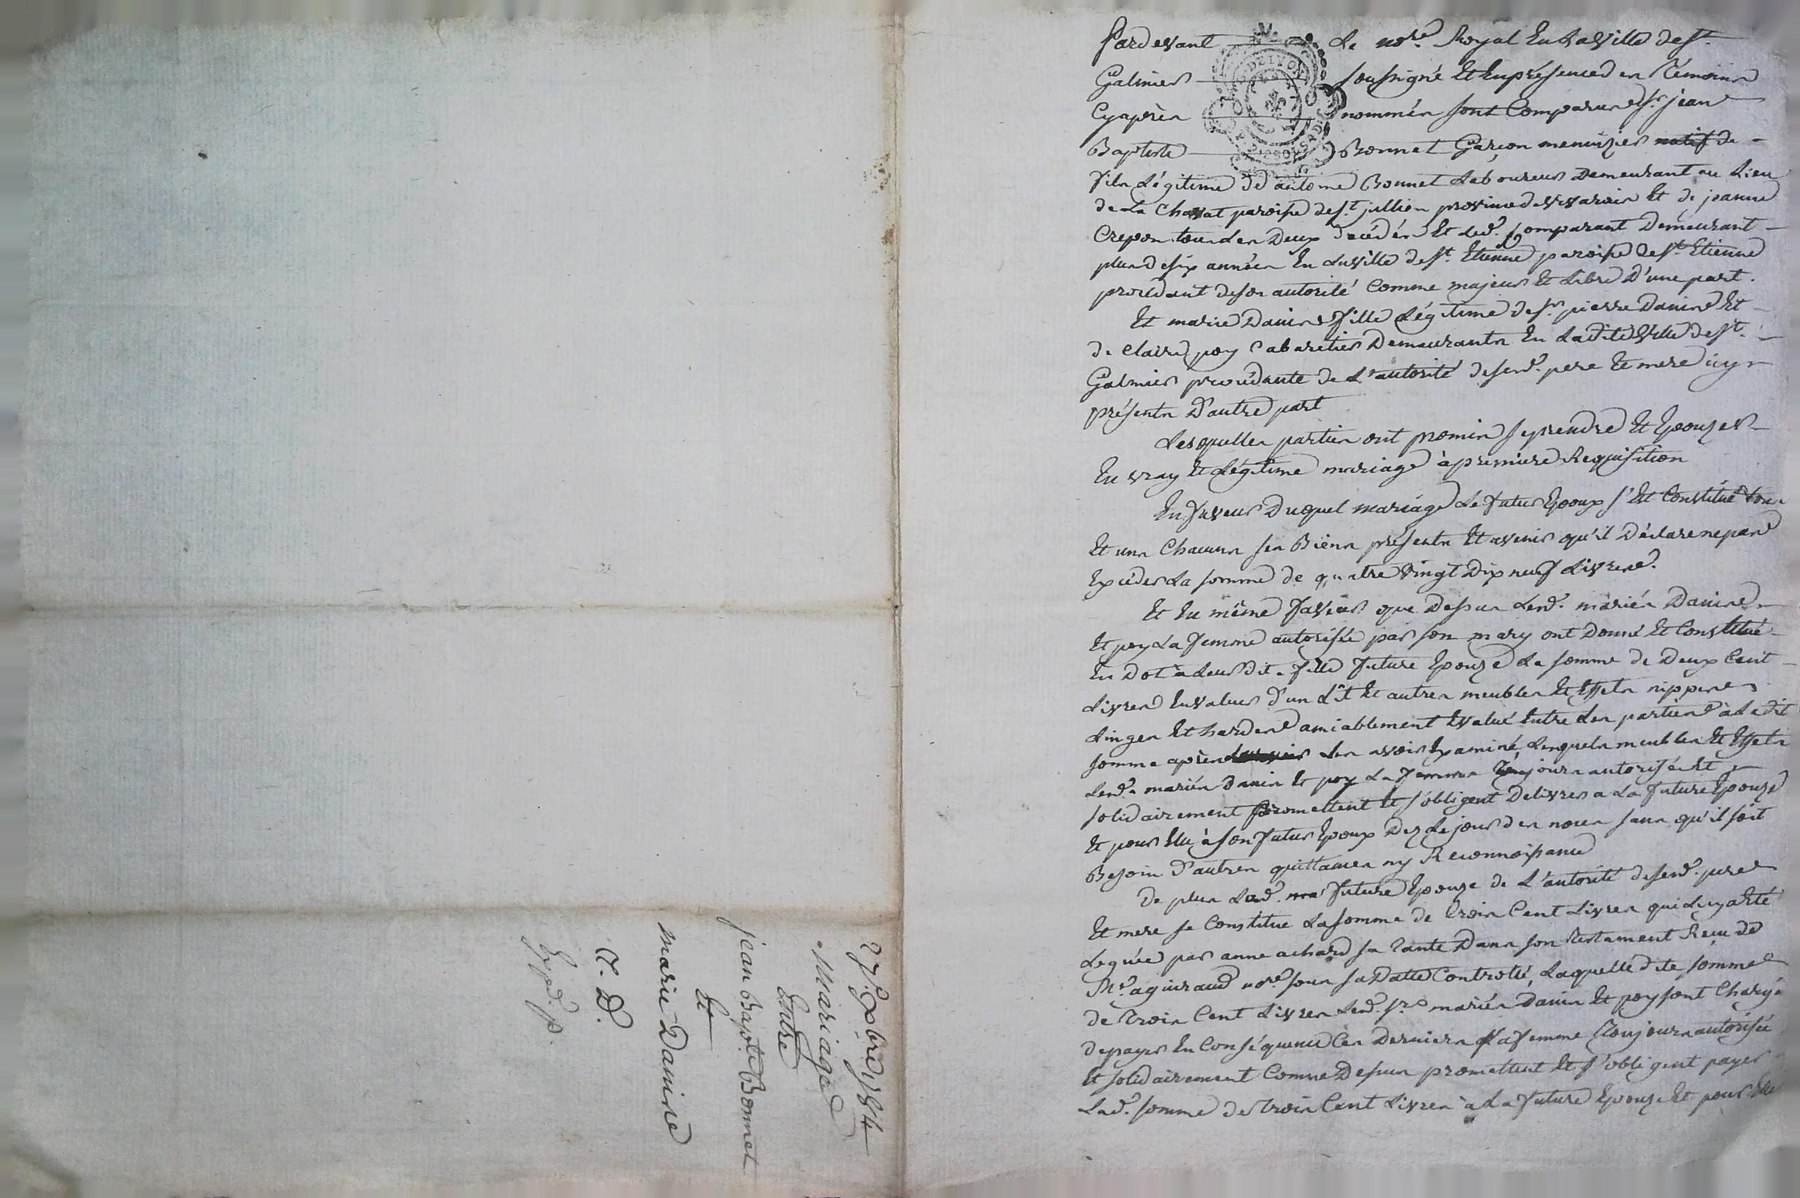 27. 9bre 1784
Mariage
Entre
jean Bapte. Bonnet
Et
marie Danine
C. D.
Expd. p.
Pardevant Le nore. Royal En La Ville de st.
Galmier soussigné Et En présence des témoins
Cyaprès nommés sont Comparus sr. jean
Baptiste Bonnet Garçon menuizier natif de
fils Légitime de d'antoine Bonnet Laboureur Demeurant au Lieu
de La Chavat paroisse de st. jullien province de vivarois Et de jeanne
Crepon tous les Deux décédés Et led. Comparant Demeurant
plus de six années En La Ville de st. Etienne paroisse de st. Etienne
procédant de son autorité Comme majeur Et Libre D'une part.
Et marie Danine fille Légitime de sr. pierre Danine Et
de Claire poy Cabaretiers Demeurants En La dite Ville de st.
Galmier procédante de L'autorité de send. pere Et mere icy
présents D'autre part
Lesquelles parties ont promis se prendre Et Epouzer
En vray Et Légitime mariage à premiere Requisition
En faveur Duquel mariage Le futur Epoux s'Est Constitué tous
Et uns Chacuns ses Biens présents Et avenir qu'il Déclare ne pas
Excéder La somme de quatre vingt Dix neuf Livres.
Et En même faveur que Dessus Lesd. mariés Danine
Et poy La femme autorisée par son mary ont Donné Et Constitué
En Dot à Leur dite fille future Epouze La somme de Deux Cent
Livres En valeur d'un Lit Et autres meubles Et Effets nippes
Linges Et hardes amiablement Evalué Entre Les parties à La dit
somme après Les avoir Examiné, Lesquels meubles Et Effets
Lesd. mariés Danin Et poy La femme toujours autorisée Et
solidairement promettent Et s'obligent Delivrer a La future Epouze
Et pour Elle à son futur Epoux Dez Le jour des noces sans qu'il soit
Besoin D'autres quittances ny Reconnoissance
De plus Lad. future Epouze de L'autorité de send. pere
Et mere se Constitue La somme de trois Cent Livres qui Luy a Eté
Leguée par anne achard sa tante Dans son testament Reçu de
Me. aguiraud nore. sous sa Datte Controllé, Laquelle dite somme
de trois Cent Livres Lesd. srs. mariés Danin Et poy sont Chargés
de payer En Conséquence Ces Derniers La femme toujours autorisée
Et solidairement Comme Dessus promettent Et s'obligent payer
Lad. somme de trois Cent Livres à La future Epouze Et pour Elle